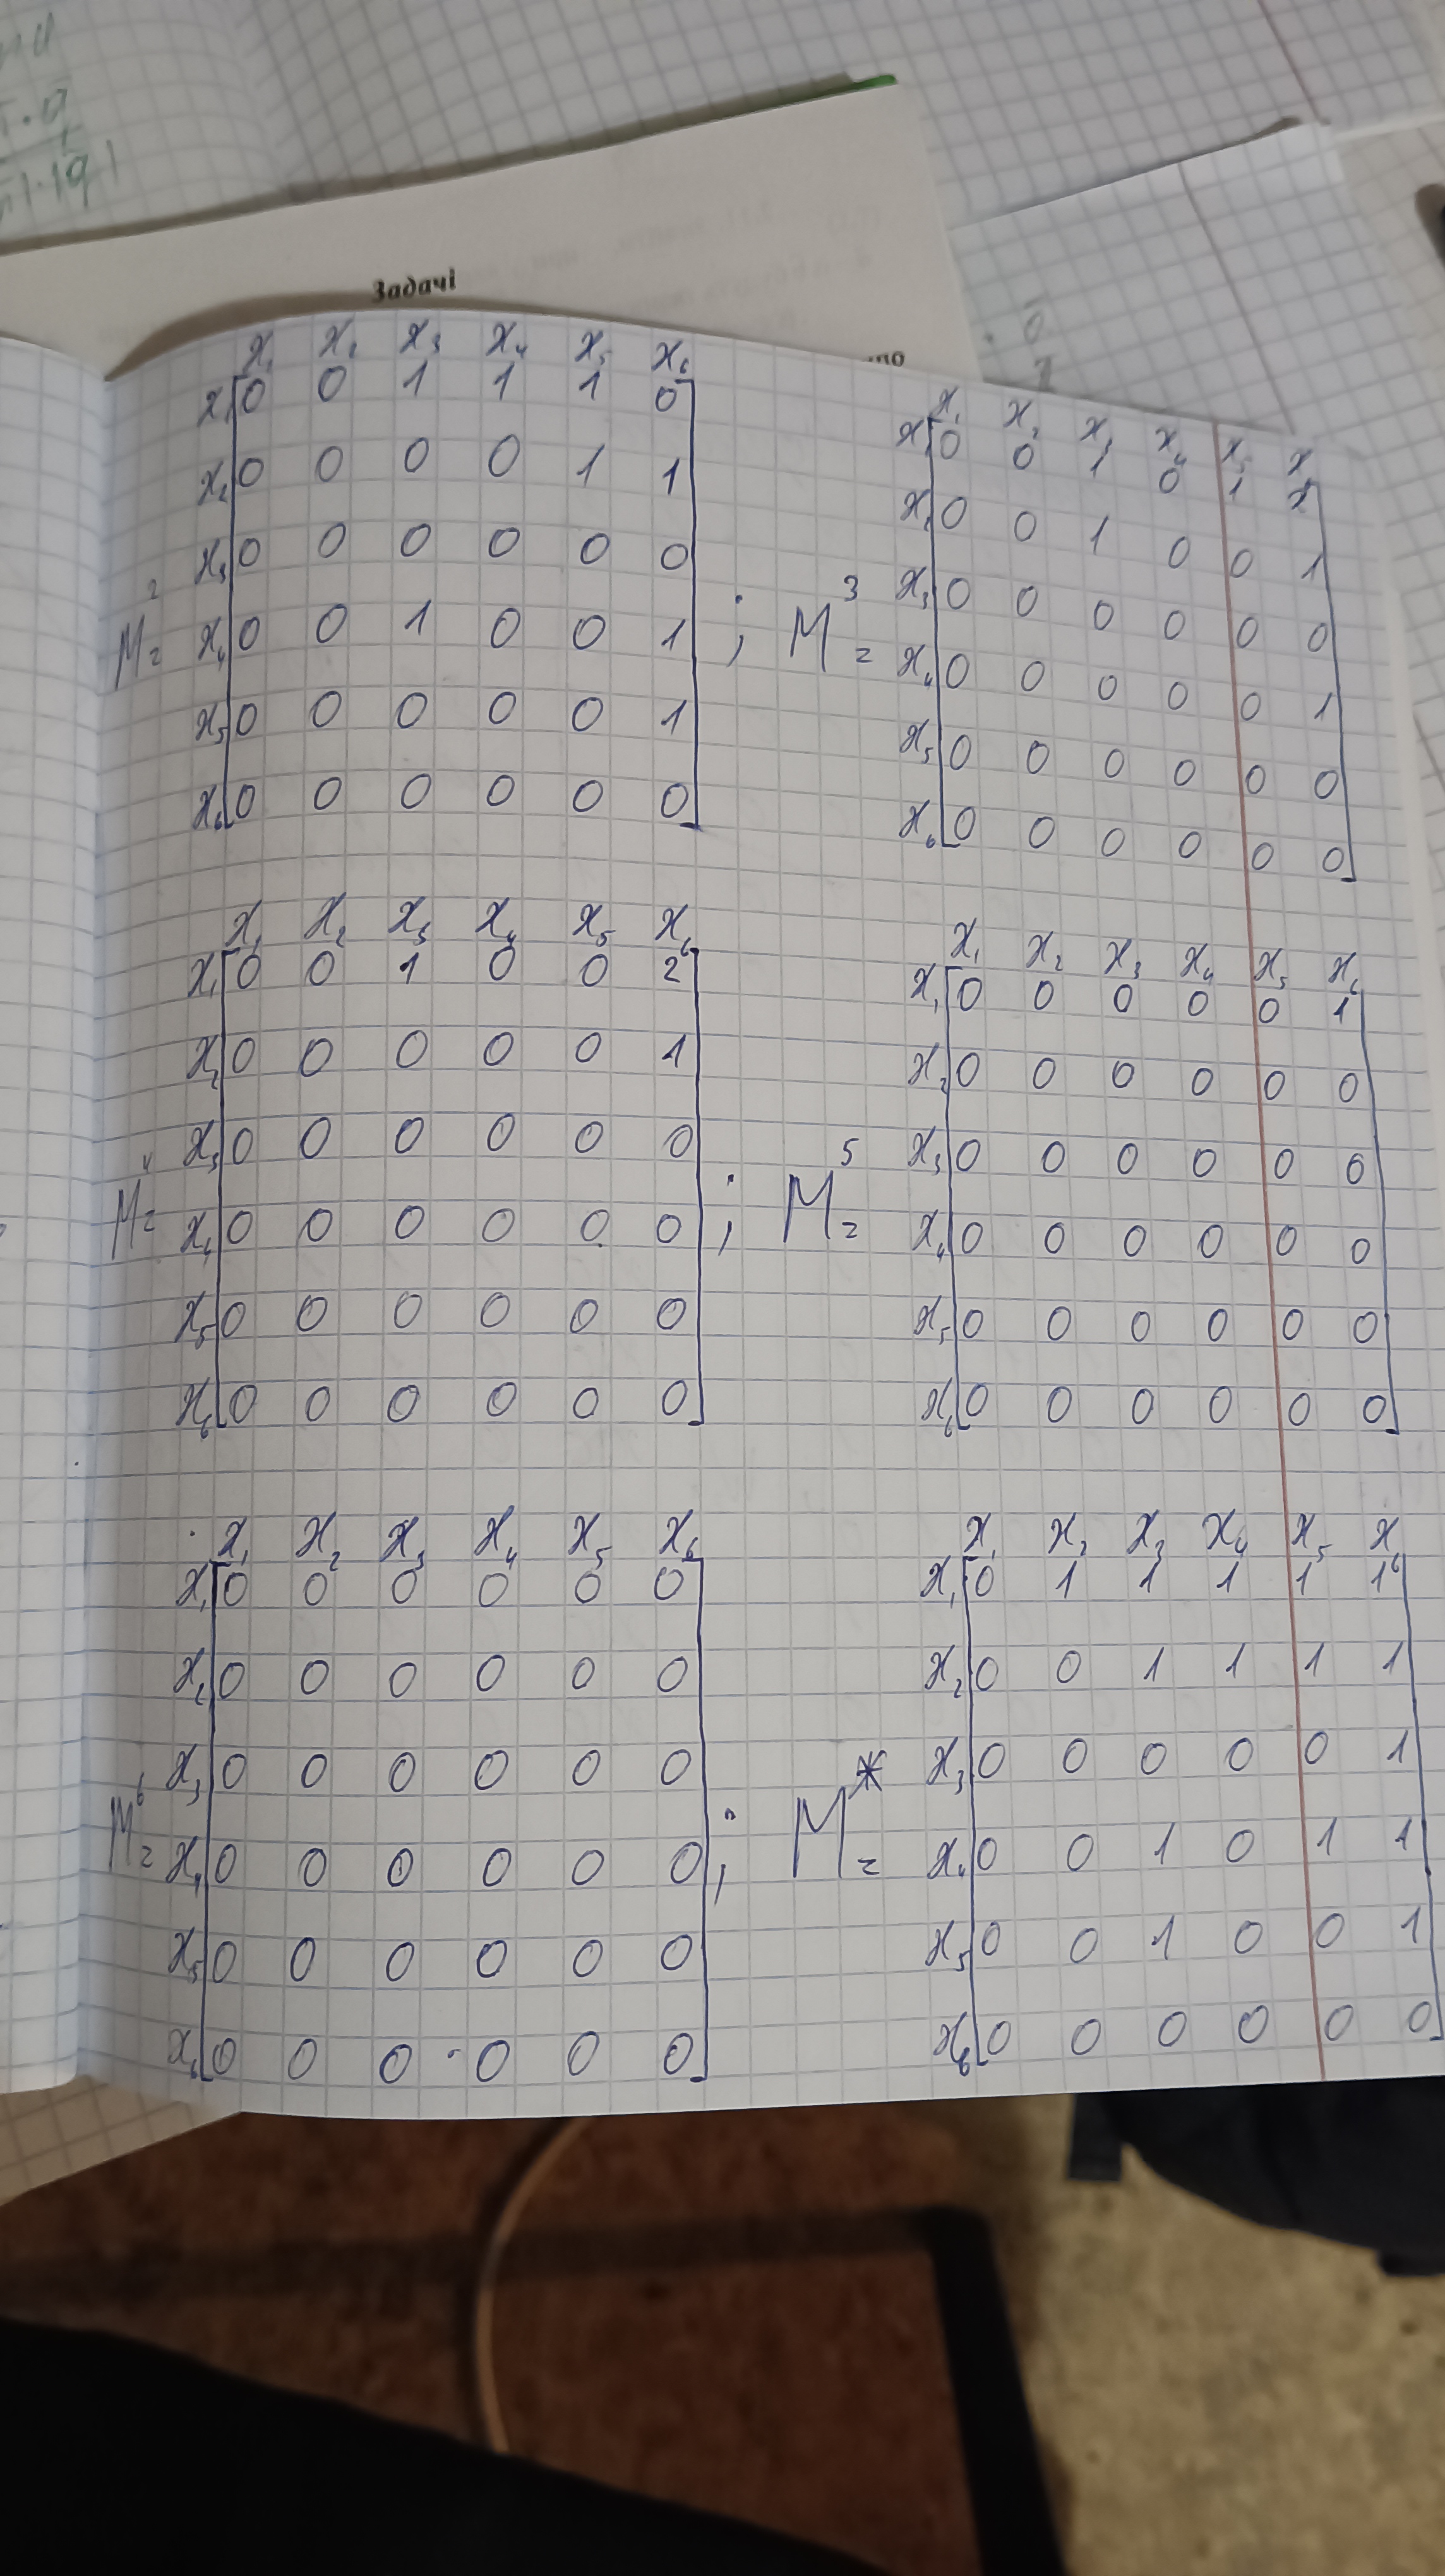 Задачі
x₁ x₂ x₃ x₄ x₅ x₆
x₁ 0 0 1 1 1 0
x₂ 0 0 0 0 1 1
x₃ 0 0 0 0 0 0
M² = x₄ 0 0 1 0 0 1 ;
x₅ 0 0 0 0 0 1
x₆ 0 0 0 0 0 0
x₁ x₂ x₃ x₄ x₅ x
x₁ 0 0 1 0 1
x₂ 0 0 1 0 0 1
x₃ 0 0 0 0 0 0
M³ = x₄ 0 0 0 0 0 1
x₅ 0 0 0 0 0 0
x₆ 0 0 0 0 0 0
x₁ x₂ x₃ x₄ x₅ x₆
x₁ 0 0 1 0 0 2
x₂ 0 0 0 0 0 1
x₃ 0 0 0 0 0 0
M⁴ = x₄ 0 0 0 0 0 0 ;
x₅ 0 0 0 0 0 0
x₆ 0 0 0 0 0 0
x₁ x₂ x₃ x₄ x₅ x₆
x₁ 0 0 0 0 0 1
x₂ 0 0 0 0 0 0
x₃ 0 0 0 0 0 0
M⁵ = x₄ 0 0 0 0 0 0
x₅ 0 0 0 0 0 0
x₆ 0 0 0 0 0 0
x₁ x₂ x₃ x₄ x₅ x₆
x₁ 0 0 0 0 0 0
x₂ 0 0 0 0 0 0
x₃ 0 0 0 0 0 0
M⁶ = x₄ 0 0 0 0 0 0 ;
x₅ 0 0 0 0 0 0
x₆ 0 0 0 0 0 0
x₁ x₂ x₃ x₄ x₅ x₆
x₁ 0 1 1 1 1 1
x₂ 0 0 1 1 1 1
x₃ 0 0 0 0 0 1
M* = x₄ 0 0 1 0 1 1
x₅ 0 0 1 0 0 1
x₆ 0 0 0 0 0 0